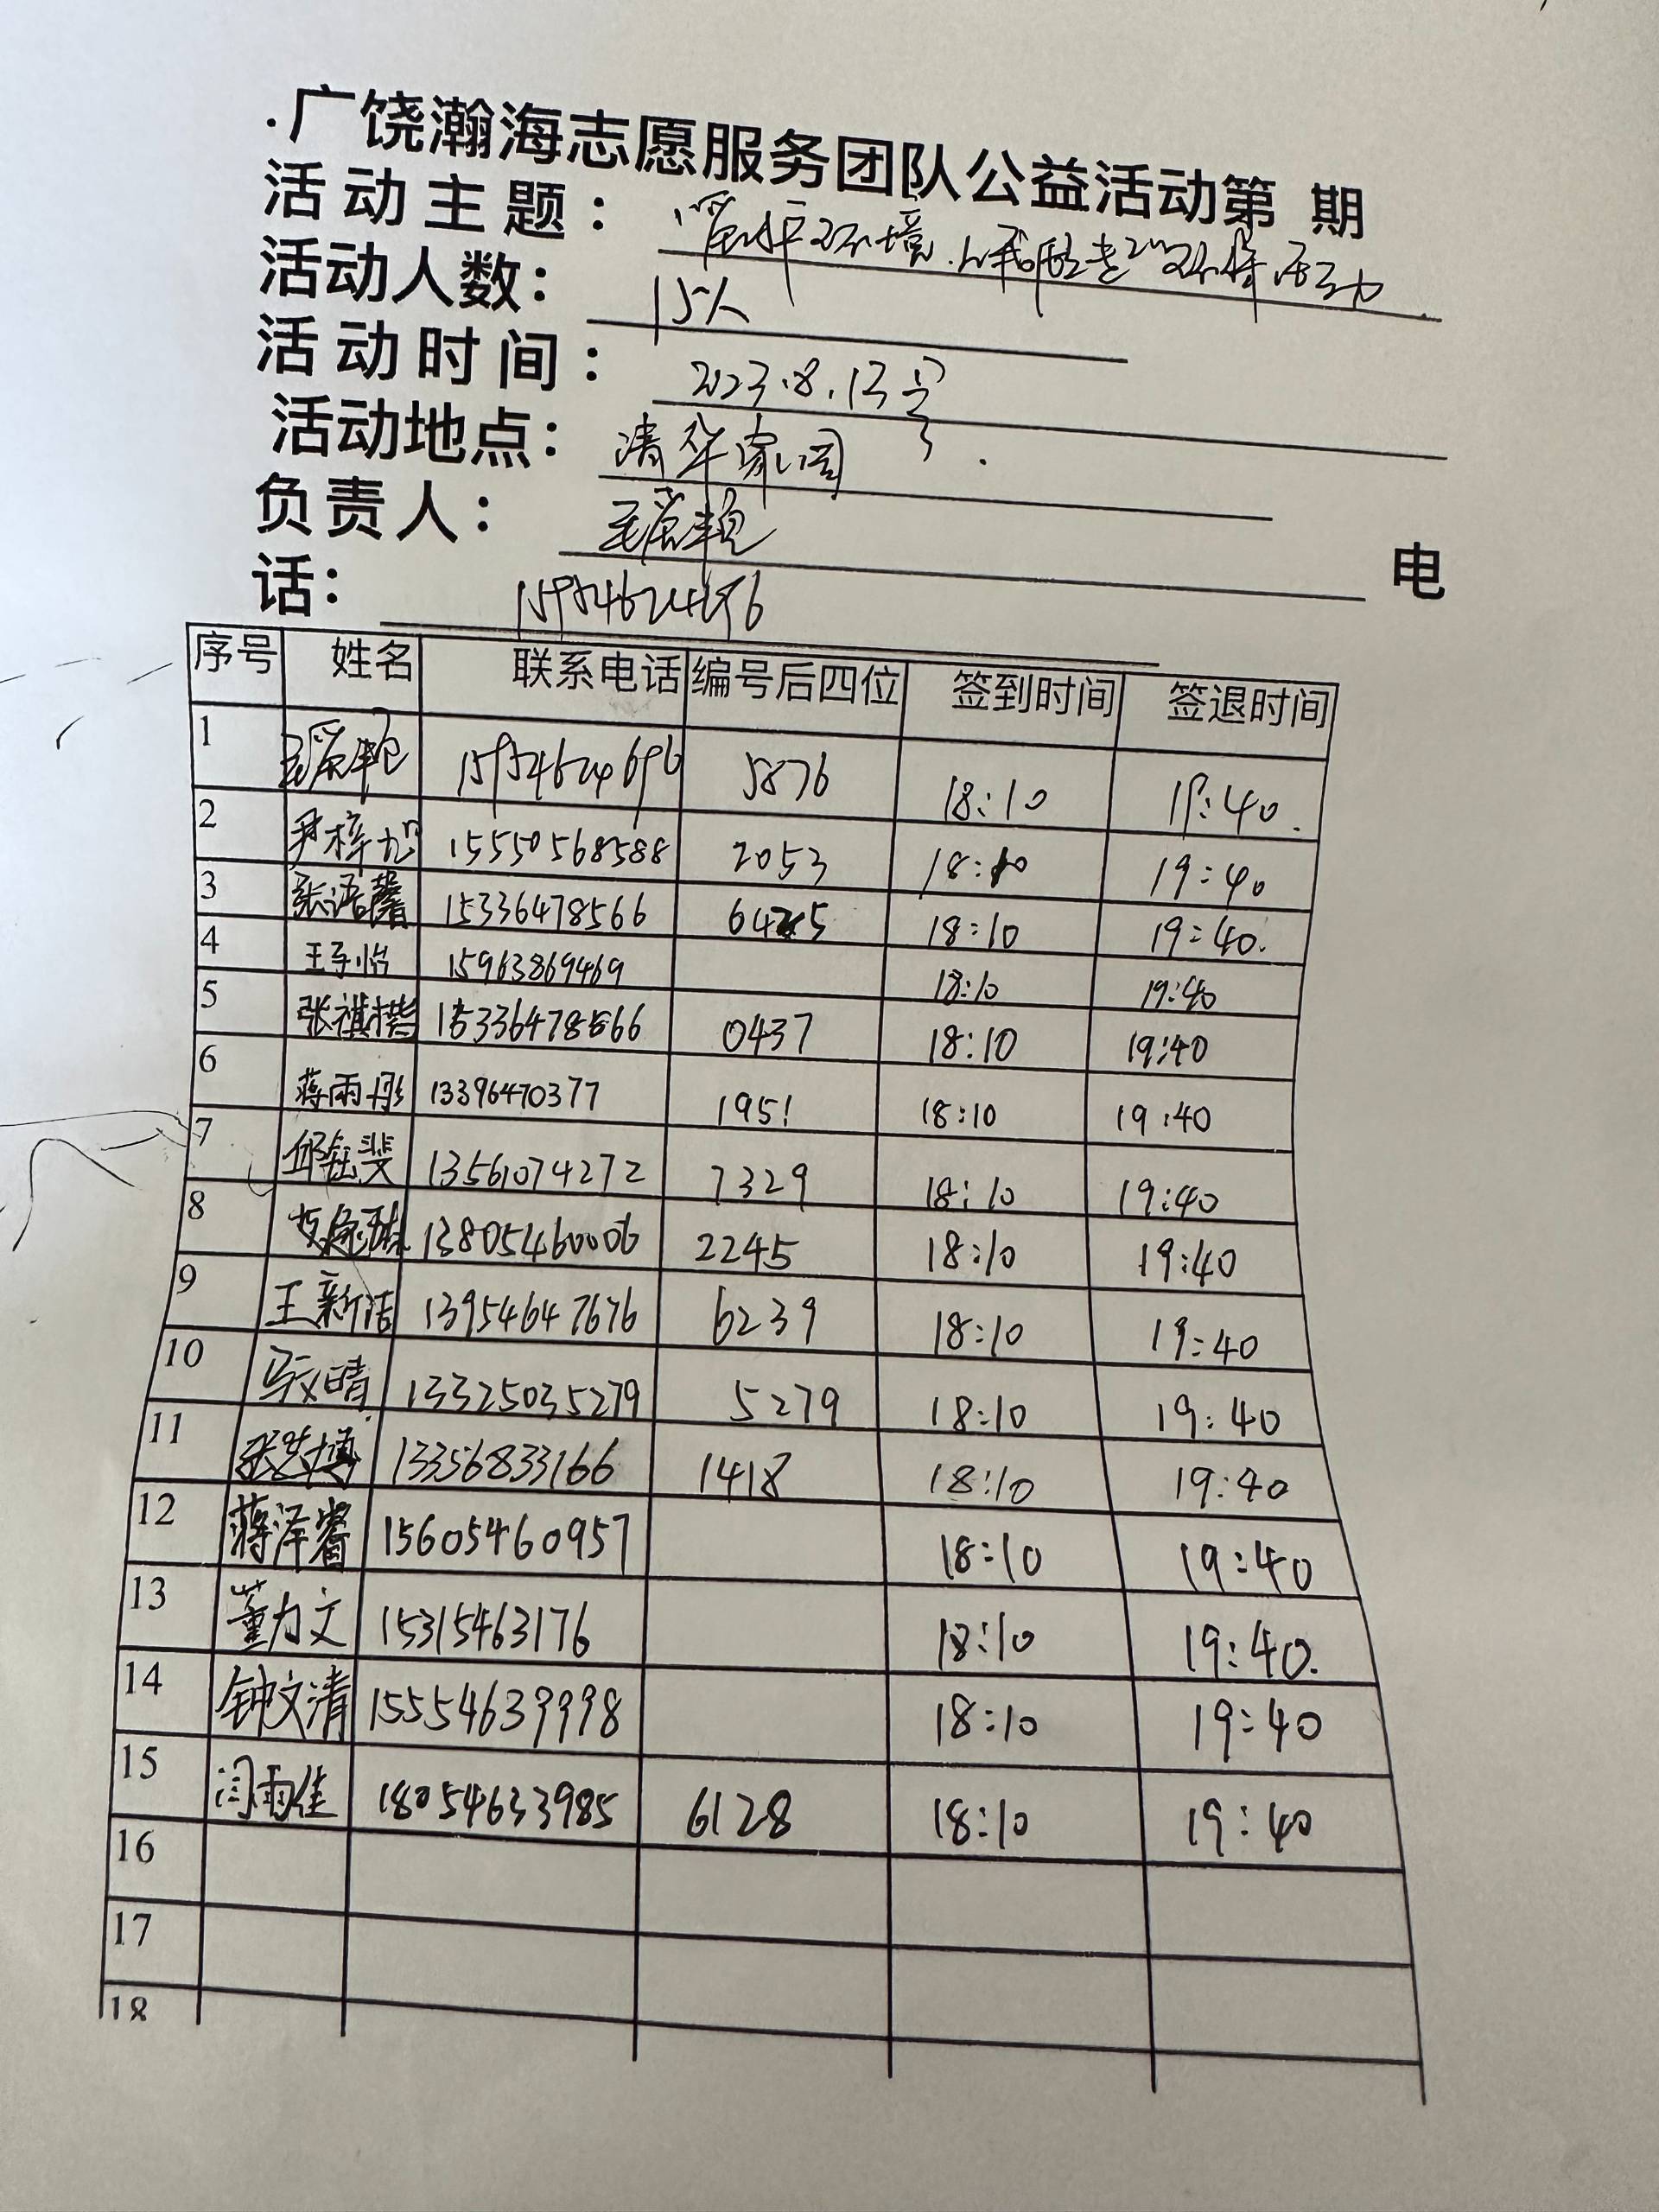 .广饶瀚海志愿服务团队公益活动第 期
活动主题：“爱护环境.从我做起”环保活动
活动人数：15人
活动时间：2023.8.13号
活动地点：清华家园
负责人： 电
话：
序号 姓名 联系电话 编号后四位 签到时间 签退时间
1 5876 18:10 19:40.
2 15550568588 2053 18:10 19:40
3 张语馨 15336478566 18:10 19:40.
4 王子怡 15963869469 18:10 19:40
5 张祺楷 15336478566 0437 18:10 19:40
6 蒋雨彤 13396470377 1951 18:10 19:40
7 邱钰斐 13561074272 7329 18:10 19:40
8 13805460006 2245 18:10 19:40
9 王新洁 13954647676 6239 18:10 19:40
10 马文晴 13325035279 5279 18:10 19:40
11 13356833166 1418 18:10 19:40
12 蒋泽睿 15605460957 18:10 19:40
13 董力文 15315463176 18:10 19:40.
14 钟文清 15554639998 18:10 19:40
15 闫雨佳 18054633985 6128 18:10 19:40
16
17
18